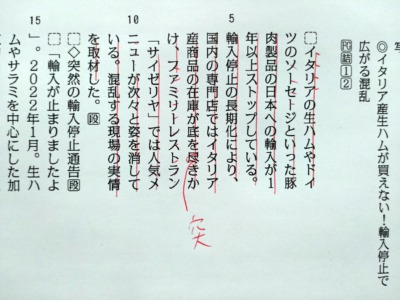 ◎イタリア産生ハムが買えない!輸入停止で
広がる混乱
□イタリアの生ハムやドイ
ツのソーセージといった豚
肉製品の日本への輸入が1
年以上ストップしている。
5
輸入停止の長期化により、
国内の専門店ではイタリア
産商品の在庫が底を尽きか
突
け、ファミリーレストラン
「サイゼリヤ」では人気メ
10
ニューが次々と姿を消して
いる。混乱する現場の実情
を取材した。段
□◇突然の輸入停止通告段
□「輸入が止まりましたよ
15
」。2022年1月。生ハ
ムやサラミを中心にした加